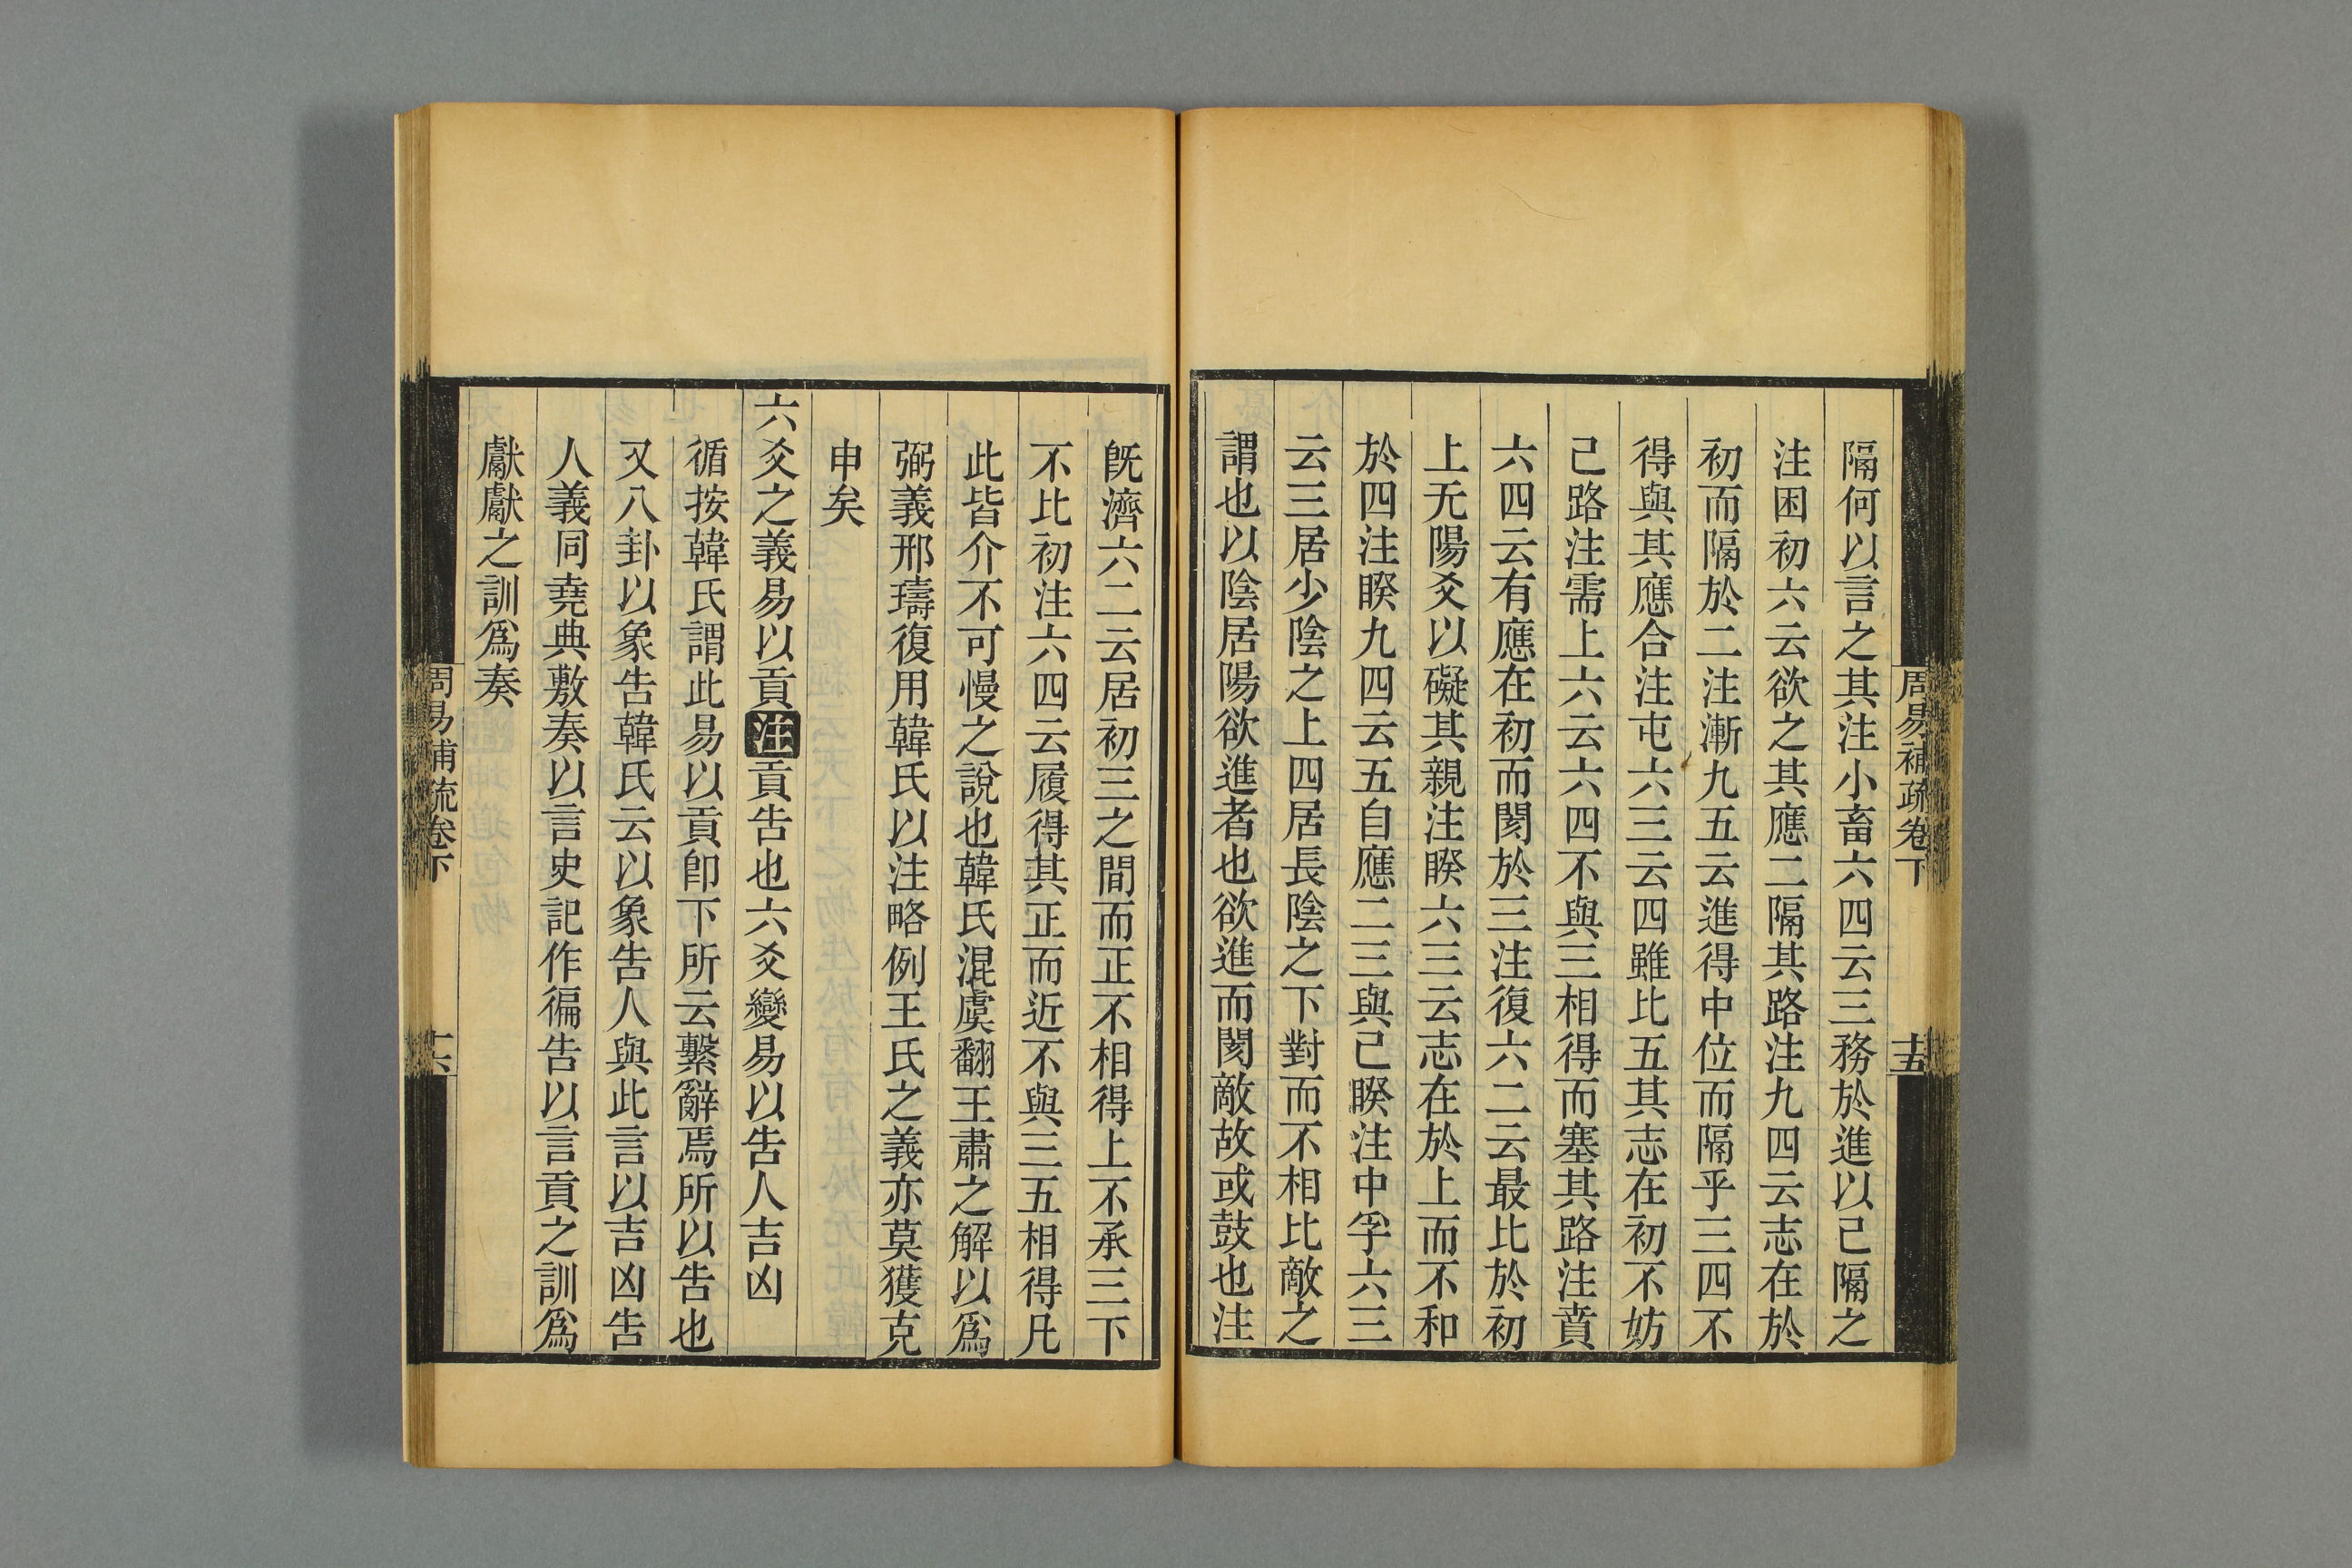 周易補疏卷下
十五
隔何以言之其注小畜六四云三務於進以己隔之
注困初六云欲之其應二隔其路注九四云志在於
初而隔於二注漸九五云進得中位而隔乎三四不
得與其應合注屯六三云四雖比五其志在初不妨
己路注需上六云六四不與三相得而塞其路注賁
六四云有應在初而閡於三注復六二云最比於初
上无陽爻以礙其親注睽六三云志在於上而不和
於四注睽九四云五自應二三與己睽注中孚六三
云三居少陰之上四居長陰之下對而不相比敵之
謂也以陰居陽欲進者也欲進而閡敵故或鼓也注
旣濟六二云居初三之間而正不相得上不承三下
不比初注六四云履得其正而近不與三五相得凡
此皆介不可慢之說也韓氏混虞翻王肅之解以爲
弼義邢璹復用韓氏以注略例王氏之義亦莫獲克
申矣
六爻之義易以貢注貢告也六爻變易以告人吉凶
循按韓氏謂此易以貢卽下所云繫辭焉所以告也
又八卦以象告韓氏云以象告人與此言以吉凶告
人義同堯典敷奏以言史記作徧告以言貢之訓爲
獻獻之訓爲奏
周易補疏卷下
十六